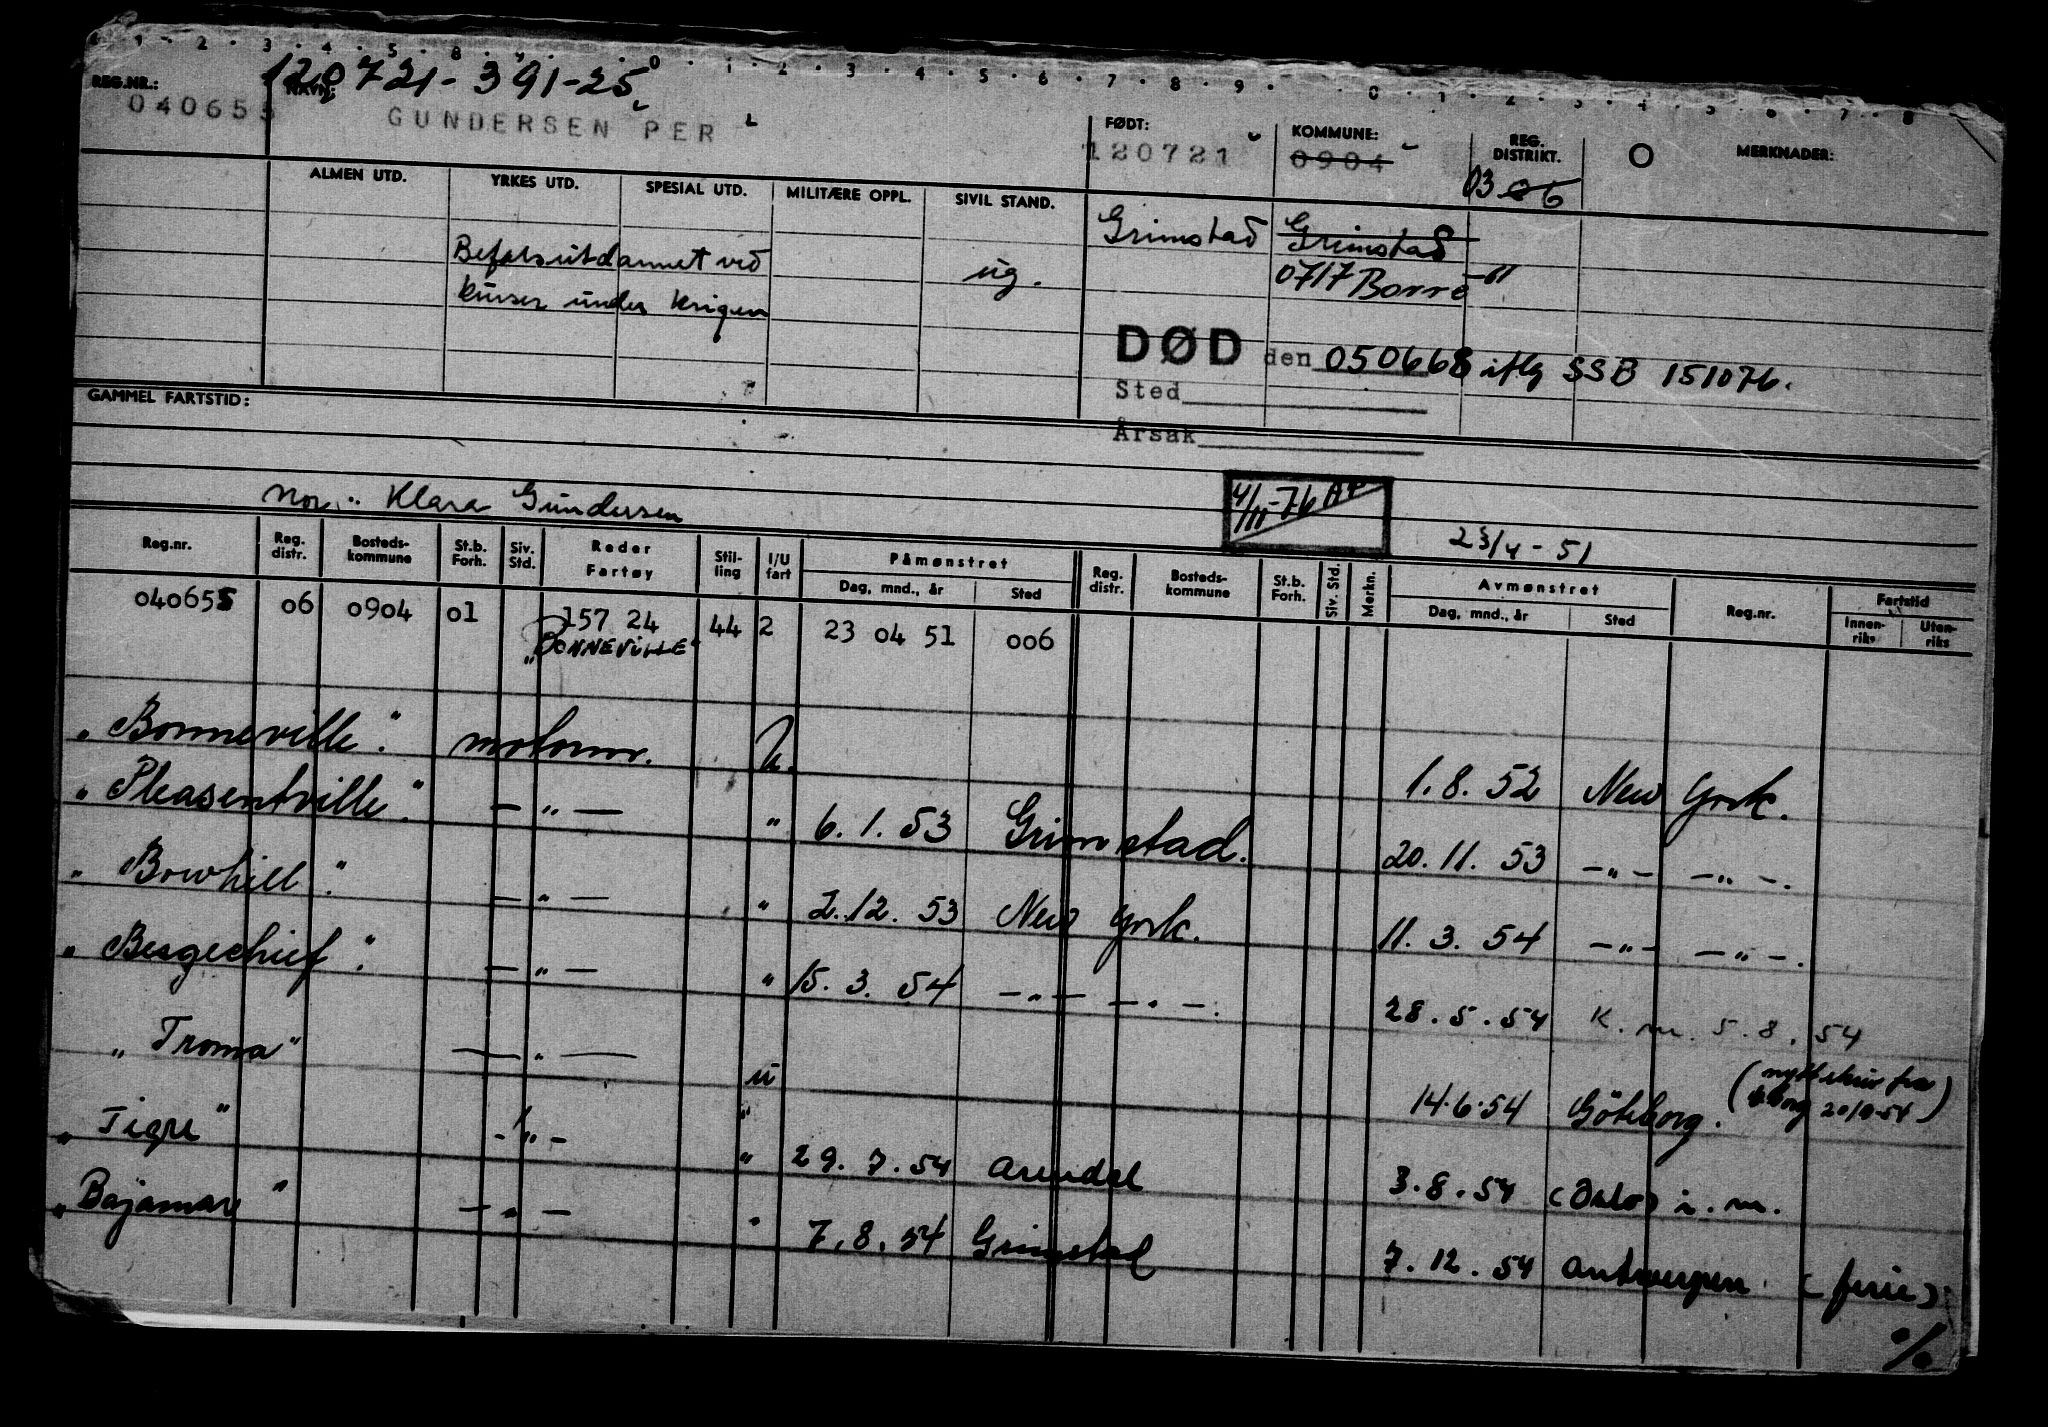 1 . 2 . 3 . 4 . 5 . 8 . 9 . 0 . 1 . 2 . 3 . 4 . 5 . 6 . 7 . 8 . 9 . 0 . 1 . 2 . 3 . 4 . 5 . 6 . 7 . 8
120721-391-25
REG.NR.: NAVN: FØDT: KOMMUNE: REG. DISTRIKT. O MERKNADER:
040655 GUNDERSEN PER 120721 0904
03 06
ALMEN UTD. YRKES UTD. SPESIAL UTD. MILITÆRE OPPL. SIVIL STAND.
Grimstad Grimstad
Befalsutdannet ved ug. 0717 Borre -61
kurser under krigen
DØD den 050668 iflg SSB 151076.
Sted
Årsak
GAMMEL FARTSTID:
4/11-76 AP
Mor: Klara Gundersen
23/4-51
Reg.nr. Reg. distr. Bosteds-kommune St.b. Forh. Siv. Std. Reder Fartøy Stil-ling I/U fart Påmønstret Dag, mnd., år Sted Reg. distr. Bosteds-kommune St.b. Forh. Siv. Std. Merkn. Avmønstret Dag, mnd., år Sted Reg.nr. Fartstid Innen-riks Uten-riks
040655 06 0904 01 157 24 44 2 23 04 51 006
"BONNEVILLE"
"Bonneville". motorm. U. 1.8.52 New York.
"Pleasentville". — " — " 6.1.53 Grimstad. 20.11.53 — " — — " —.
"Bowhill". — " — " 2.12.53 New York. 11.3.54 — " — — " —.
"Bergechief". — " — " 15.3.54 — " — — " —. 28.5.54 K.m. 5.8.54
"Troma" — " — u 14.6.54 Göteborg.
"Tigre" — " — " 29.7.54 Arendal 3.8.54 (Oslo) i.m.
"Bajamar" — " — " 7.8.54 Grimstad 7.12.54 Antwerpen (ferie).
%